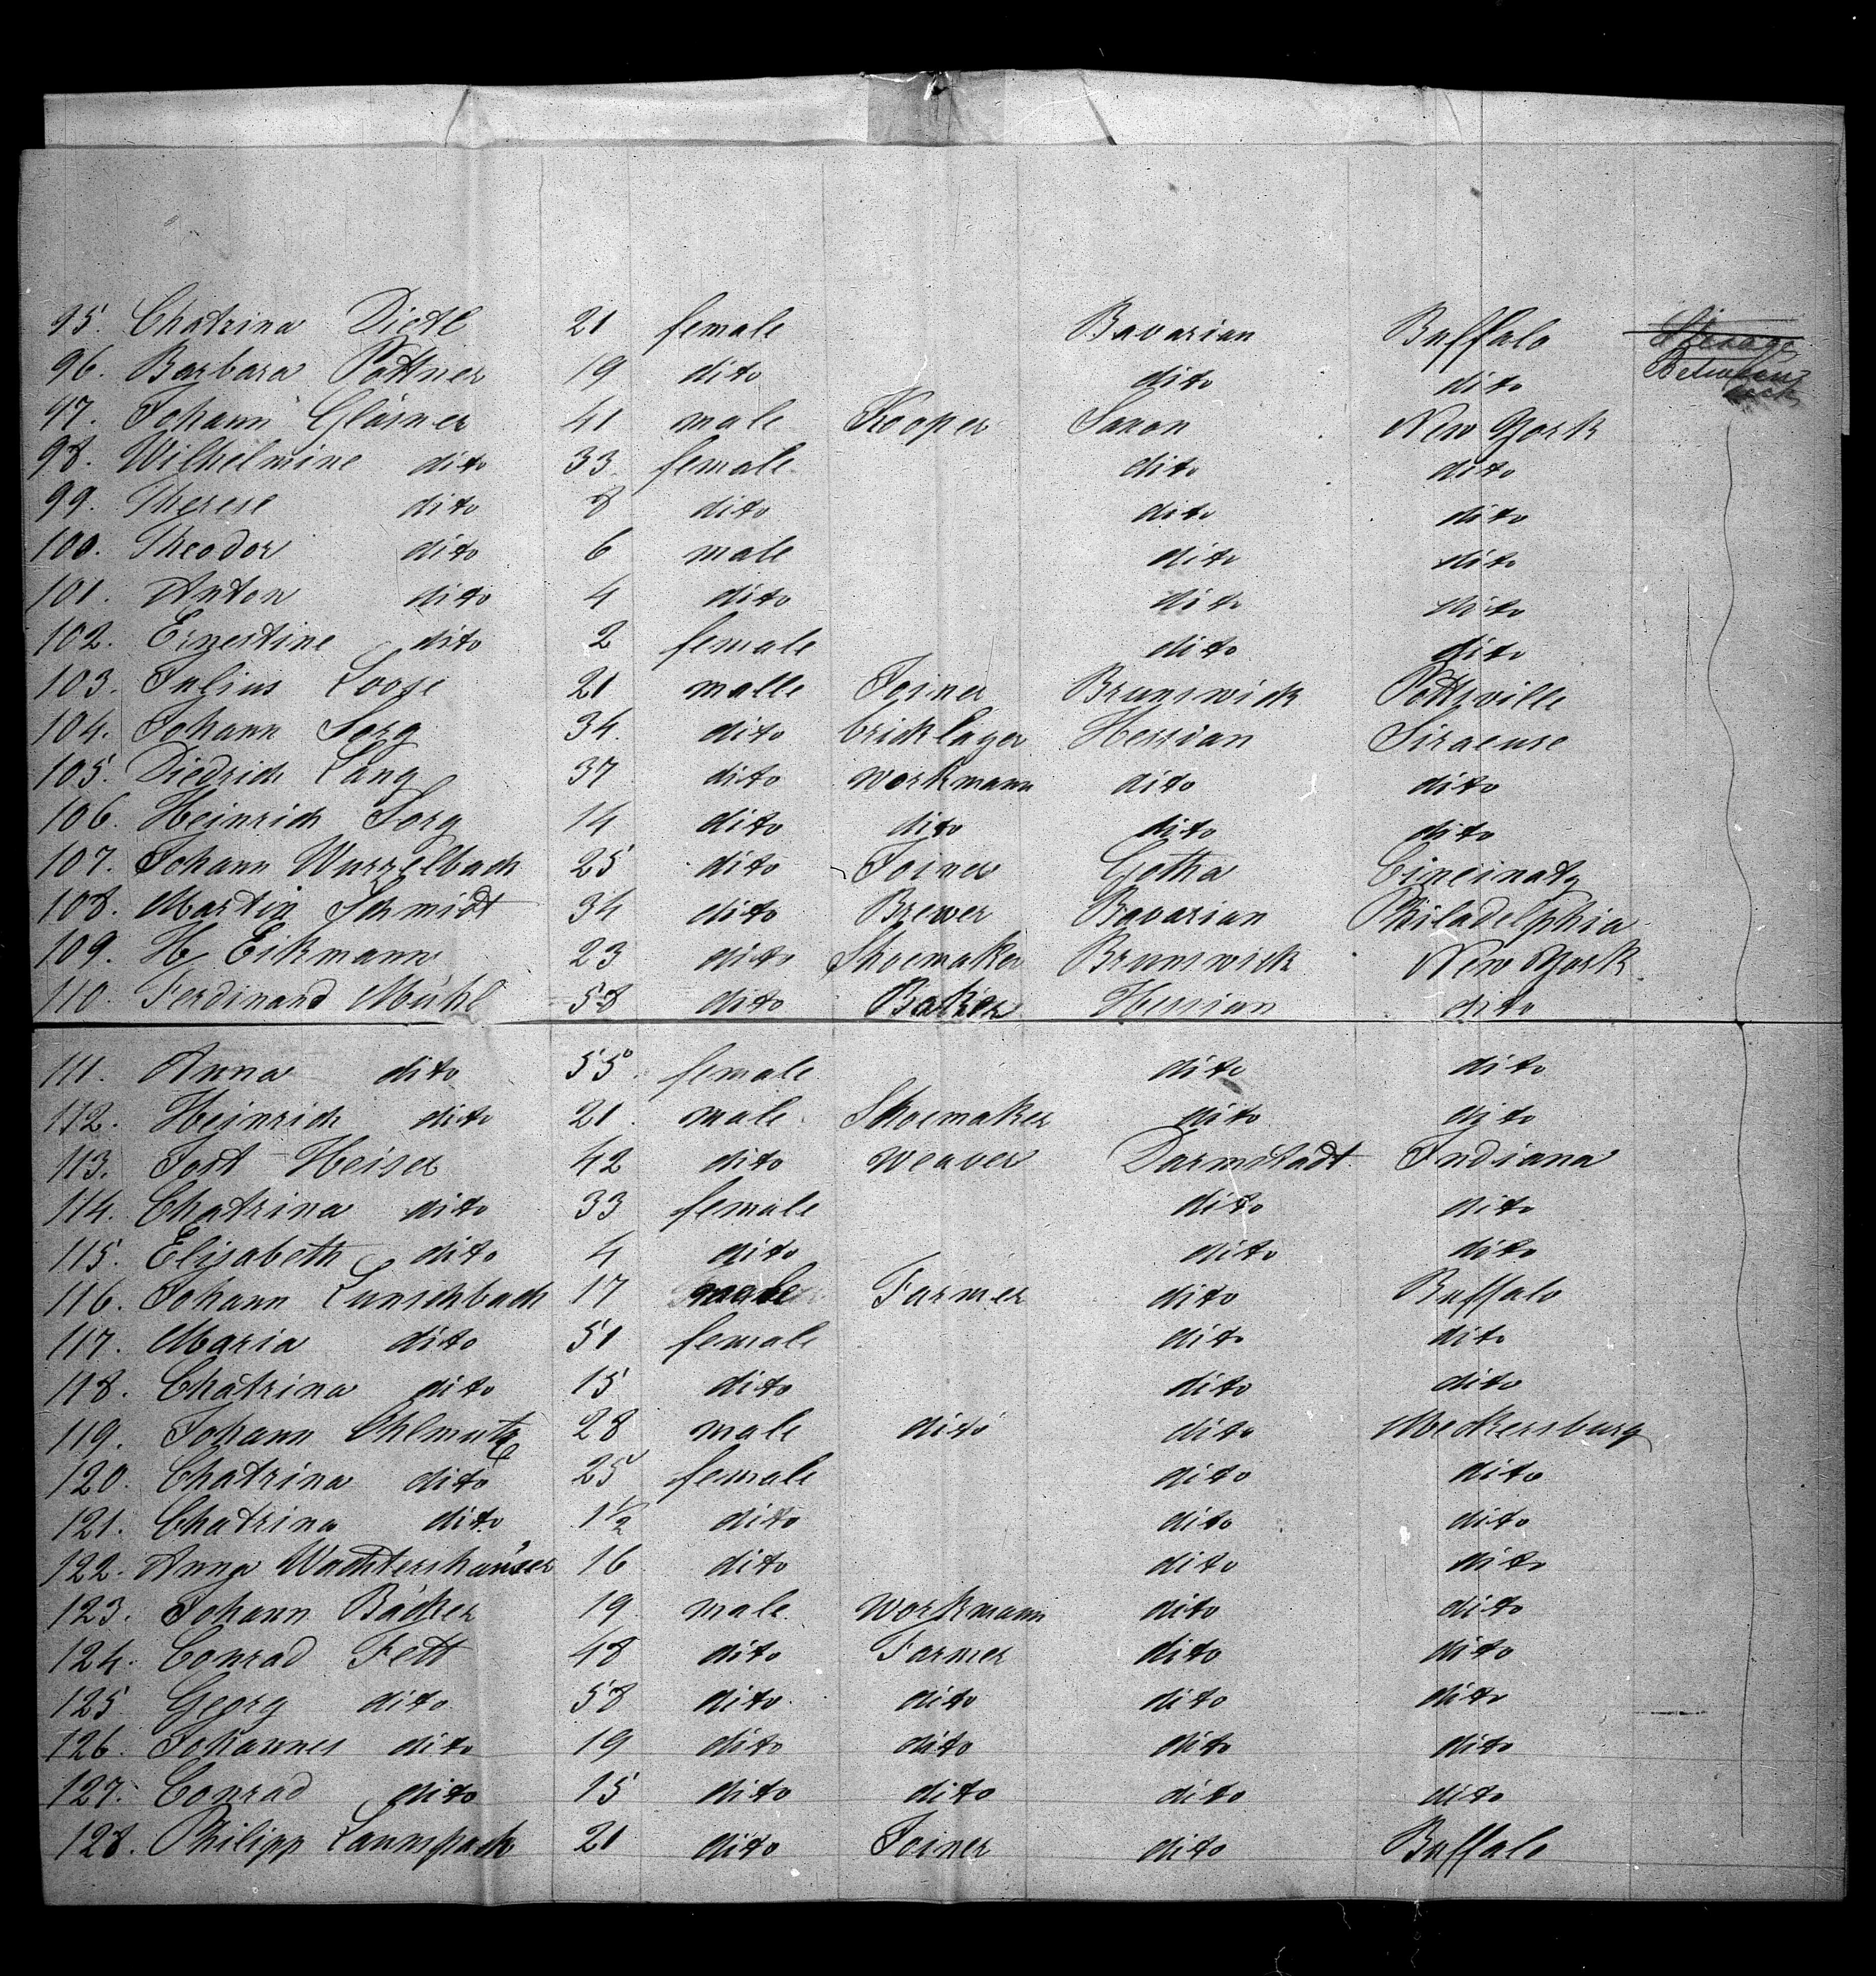 95. Chatrina Dietl 21 female Bavarian Buffalo Sterage
96. Barbara Pöttner 19 dito dito dito Between deck
97. Johann Gläsner 41 male Kooper Saxon New York
98. Wilhelmine dito 33 female dito dito
99. Therese dito 8 dito dito dito
100. Theodor dito 6 male dito dito
101. Anton dito 4 dito dito dito
102. Ernestine dito 2 female dito dito
103. Julius Loose 21 malle Joiner Brunswick Pottsville
104. Johann Sorg 34 dito bricklayer Hessian Siracuse
105. Diedrich Lang 37 dito workmann dito dito
106. Heinrich Sorg 14 dito dito dito dito
107. Johann Wurzelbach 25 dito Joiner Gotha Cincinaty
108. Martin Schmidt 34 dito Brewer Bavarian Philadelphia
109. H Eikmann 23 dito Shoemaker Brunswick New York
110. Ferdinand Mühl 58 dito Baker Hessian dito
111. Anna dito 55 female dito dito
112. Heinrich dito 21 male Shoemaker dito dito
113. Jost Heiser 42 dito weaver Darmstadt Indiana
114. Chatrina dito 33 female dito dito
115. Elisabeth dito 4 dito dito dito
116. Johann Lunschbach 17 male Farmer dito Buffalo
117. Maria dito 51 female dito dito
118. Chatrina dito 15 dito dito dito
119. Johann Ohlmutz 28 male dito dito Meckersburg
120. Chatrina dito 25 female dito dito
121. Chatrina dito 1½ dito dito dito
122. Anna Wachtershauser 16 dito dito dito
123. Johann Bäcker 19 male workmann dito dito
124. Conrad Fett 48 dito Farmer dito dito
125 Georg dito 58 dito dito dito dito
126. Johannes dito 19 dito dito dito dito
127. Conrad dito 15 dito dito dito dito
128. Philipp Launspach 21 dito Joiner dito Buffalo